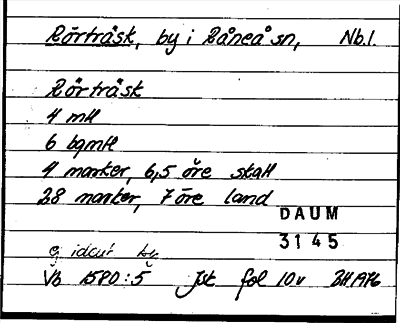 Rörträsk, by i Råneå sn, Nb.l.
Rörträsk
4 mtl
6 bgmtl
4 marker, 6,5 öre skatt
28 marker, 7 öre land
DAUM
3145
Vb 1580:5 fol 10v